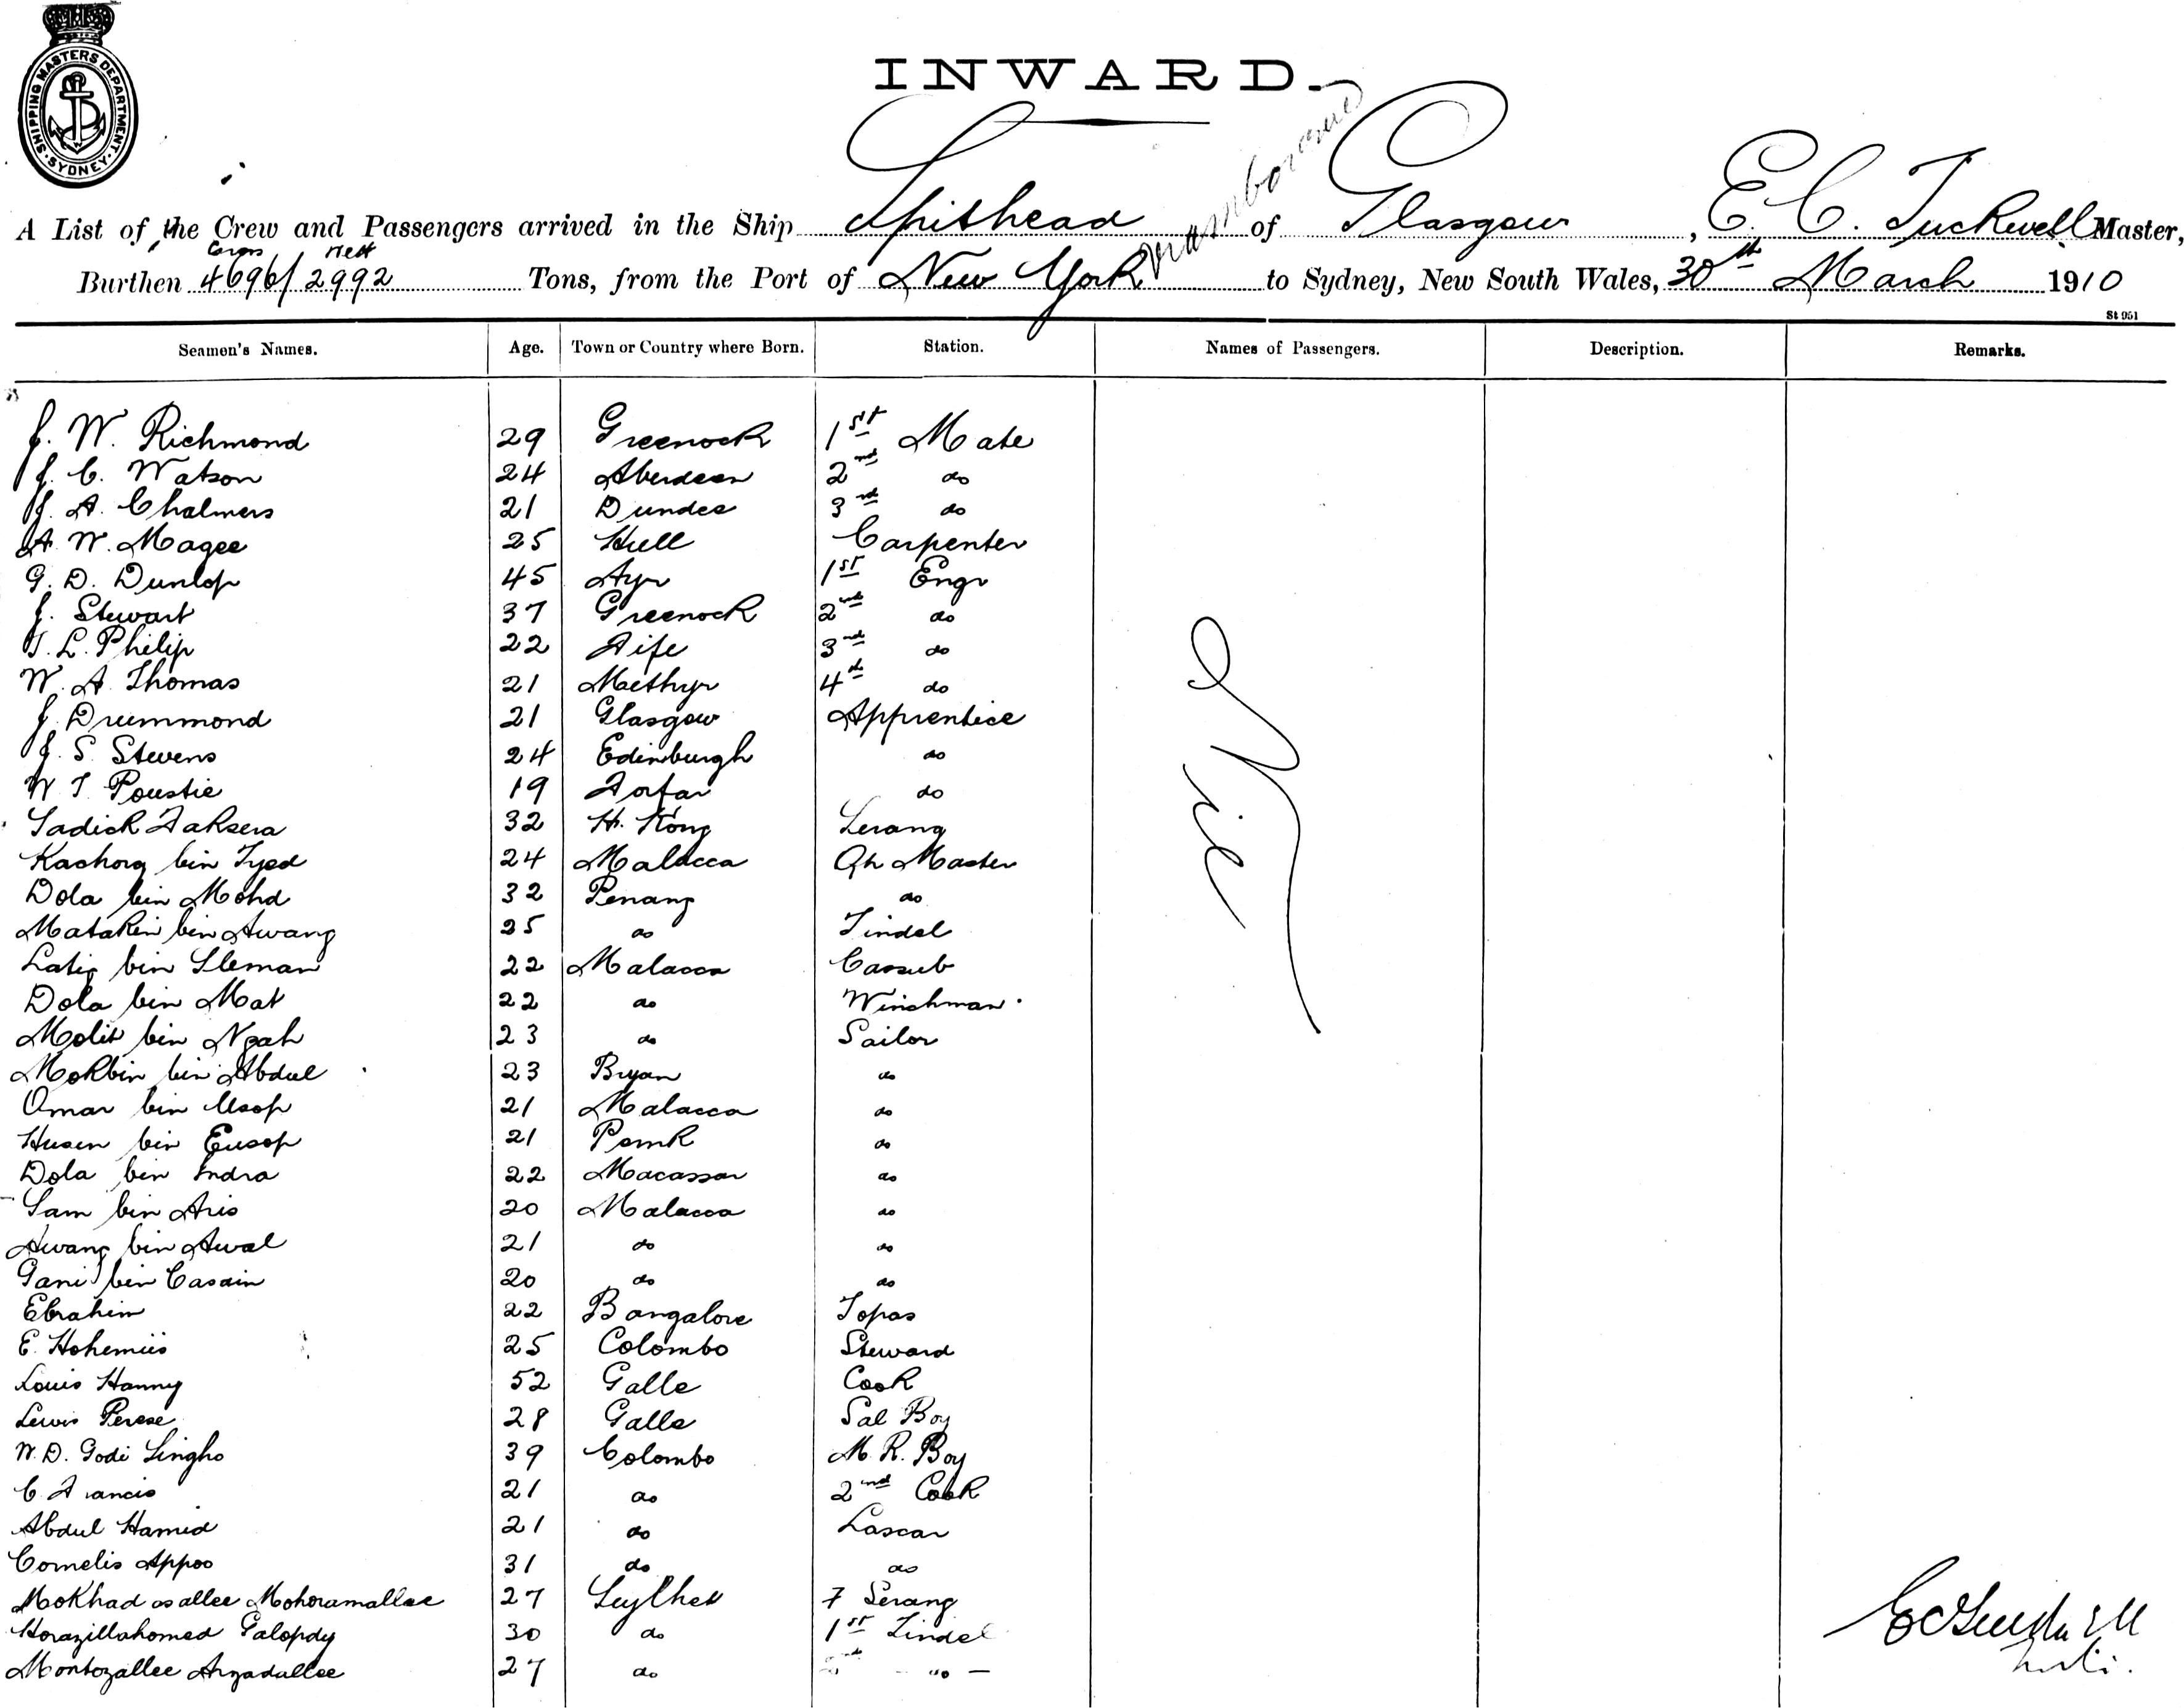 SHIPPING MASTERS DEPARTMENT
· SYDNEY ·
INWARD.
A List of the Crew and Passengers arrived in the Ship Spithead of Glasgow, E. C. Tuckwell Master,
Gross Nett
Burthen 4696/2992 Tons, from the Port of New York to Sydney, New South Wales, 30th March 1910
St 951
Seamen's Names. Age. Town or Country where Born. Station. Names of Passengers. Description. Remarks.
J. W. Richmond 29 Greenock 1st Mate
J. C. Watson 24 Aberdeen 2nd do
J. A. Chalmers 21 Dundee 3rd do
A. W. Magee 25 Hull Carpenter
G. D. Dunlop 45 Ayr 1st Engr
J. Stewart 37 Greenock 2nd do
T. L. Philip 22 Fife 3rd do
W. A Thomas 21 Methyr 4th do
J. Drummond 21 Glasgow Apprentice
J. S. Stevens 24 Edinburgh do
W T Poustie 19 Forfar do
Sadick Faksera 32 H. Kong Serang
Kachong bin Syed 24 Malacca Qr Master
Dola bin Mohd 32 Penang do
Matakin bin Awang 25 do Tindel
Latip bin Sleman 22 Malacca Cassub
Dola bin Mat 22 do Winchman
Molit bin Ngah 23 do Sailor
Mokbin bin Abdul 23 Bryan do
Omar bin Usop 21 Malacca do
Husen bin Eusop 21 do
Dola bin Indra 22 Macassar do
Sam bin Aris 20 Malacca do
Awang bin Awal 21 do do
Gani bin Casain 20 do do
Ebrahim 22 Bangalore Topas
E. 25 Colombo Steward
Louis Hanny 52 Galle Cook
Lewis Perese 28 Galle Sal Boy
W. D. Godi Singho 39 Colombo M. R. Boy
C Francis 21 do 2nd Cook
Abdul Hamid 21 do Lascar
Cornelis Appoo 31 do do
Mokhad as allee Mohoramallee 27 Seylhet F Serang
Horazillahomed Galopdy 30 do 1st Tindel
Montozallee Arzadallee 27 do 2nd do —
Nil